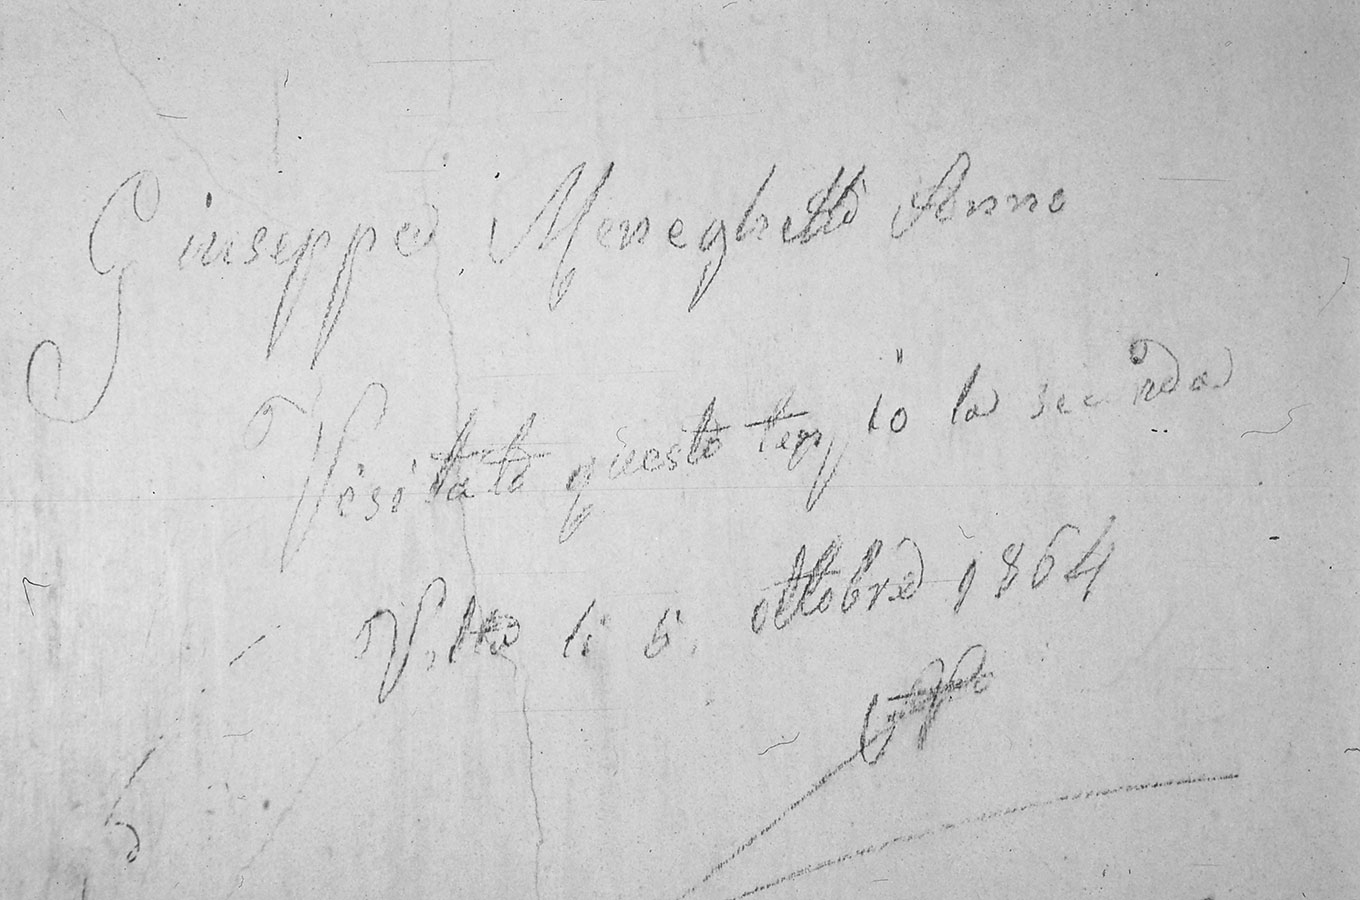 Giuseppe Meneghetti Anno
Visitato questo tempio la seconda
Volta li 5. ottobre 1864